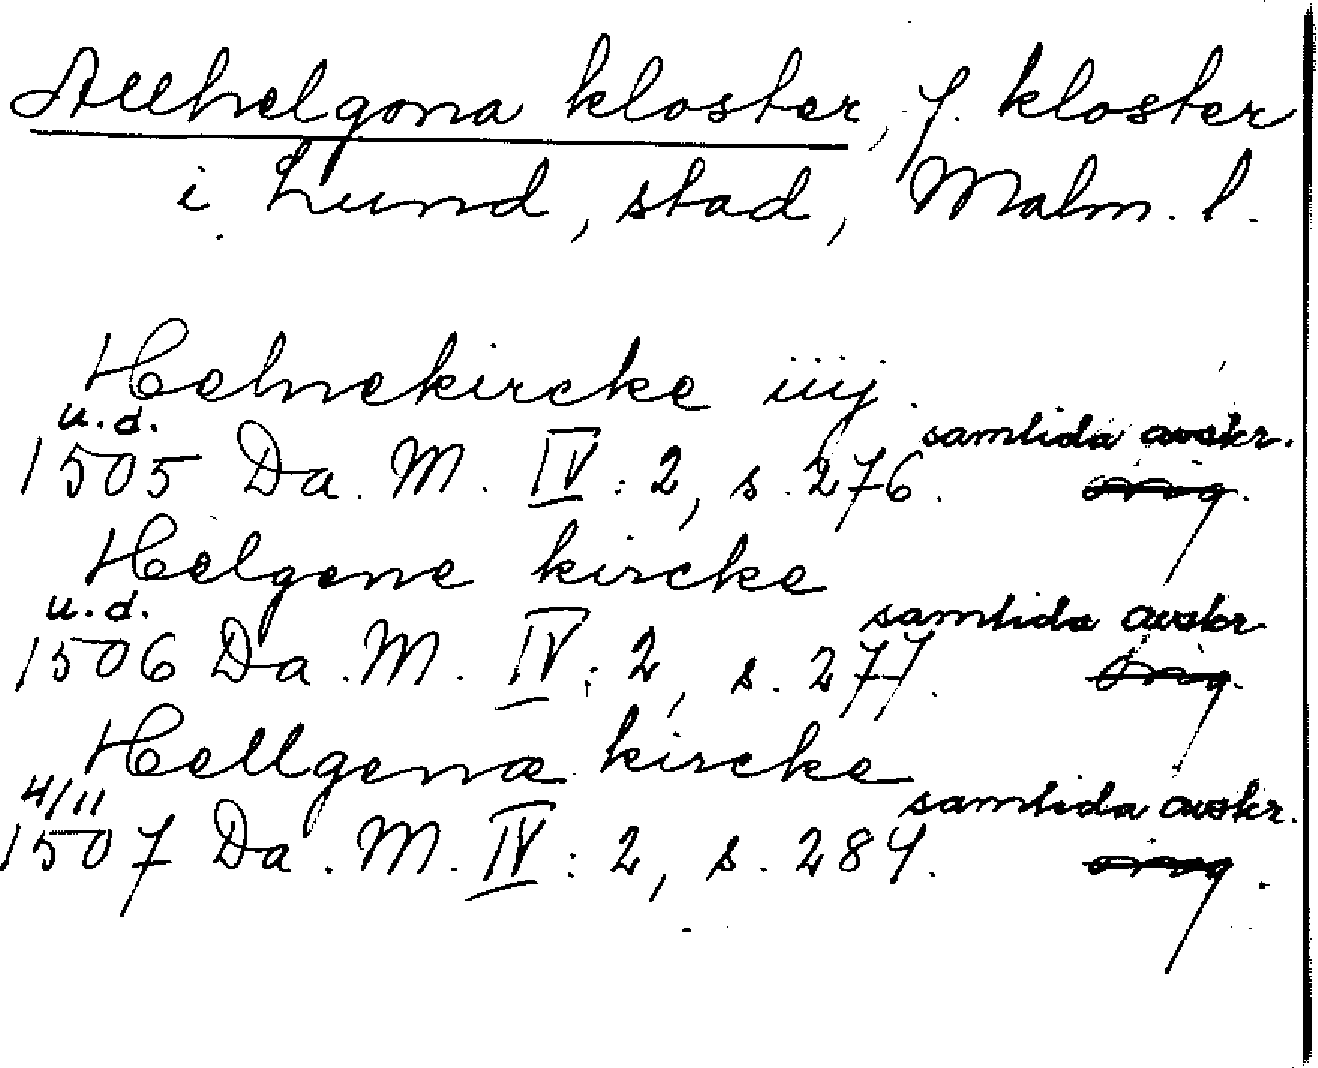 Allhelgona kloster, f. kloster
i Lund, stad, Malm. l.
Helnekircke iiij.
u.d. samtida avskr.
1505 Da. M. IV: 2, s. 276. orig.
Helgene kircke
u.d. samtida avskr
1506 Da. M. IV: 2, s. 277. Orig.
Hellgenæ kircke
4/11 samtida avskr.
1507 Da. M. IV: 2, s. 289. orig.